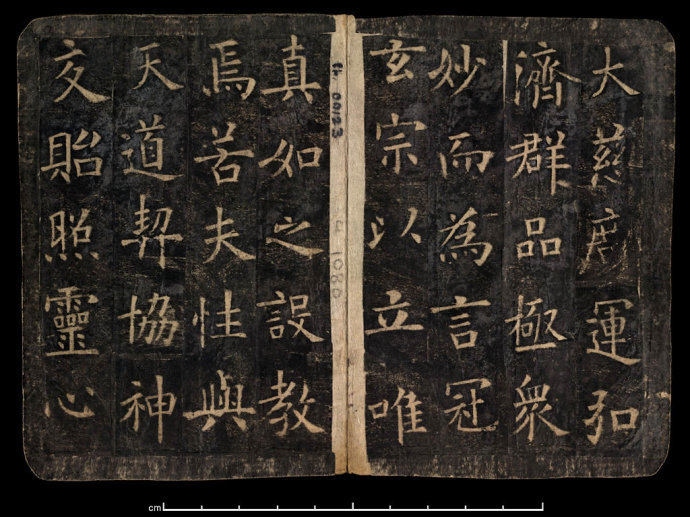 大慈度運弘
濟群品極衆
妙而為言冠
玄宗以立唯
真如之設教
焉若夫性與
天道契協神
交貽照靈心
1080
cm